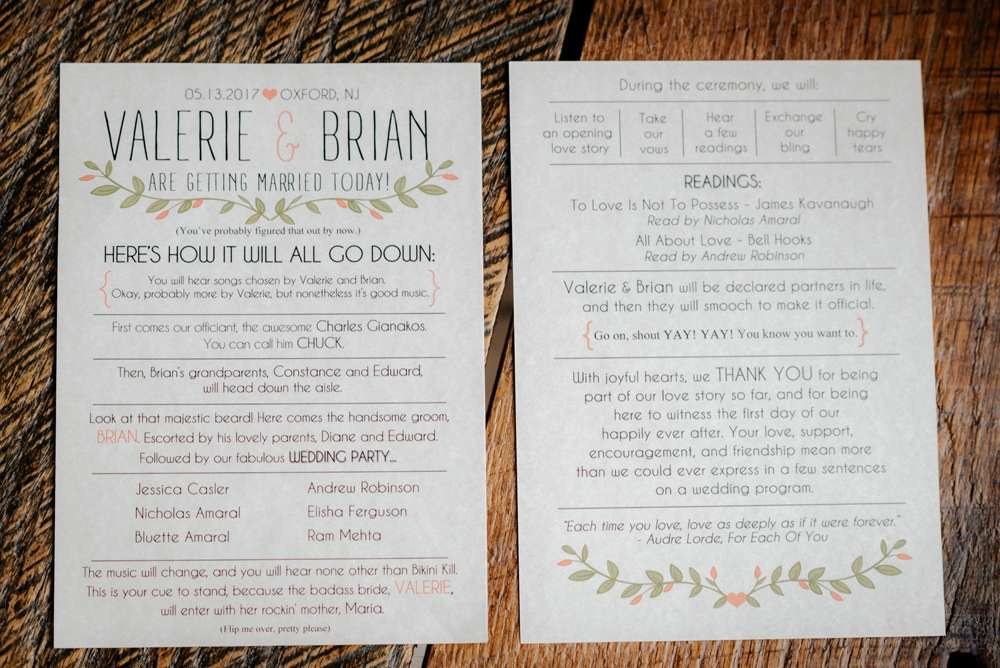 05.13.2017 ♥ OXFORD, NJ
VALERIE & BRIAN
ARE GETTING MARRIED TODAY!
(You've probably figured that out by now.)
HERE'S HOW IT WILL ALL GO DOWN:
{You will hear songs chosen by Valerie and Brian.
Okay, probably more by Valerie, but nonetheless it's good music.}
First comes our officiant, the awesome Charles Gianakos.
You can call him CHUCK.
Then, Brian's grandparents, Constance and Edward,
will head down the aisle.
Look at that majestic beard! Here comes the handsome groom,
BRIAN. Escorted by his lovely parents, Diane and Edward.
Followed by our fabulous WEDDING PARTY...
Jessica Casler
Nicholas Amaral
Bluette Amaral
Andrew Robinson
Elisha Ferguson
Ram Mehta
The music will change, and you will hear none other than Bikini Kill.
This is your cue to stand, because the badass bride, VALERIE,
will enter with her rockin' mother, Maria.
(Flip me over, pretty please)
During the ceremony, we will:
Listen to
an opening
love story
Take
our
vows
Hear
a few
readings
Exchange
our
bling
Cry
happy
tears
READINGS:
To Love Is Not To Possess - James Kavanaugh
Read by Nicholas Amaral
All About Love - Bell Hooks
Read by Andrew Robinson
Valerie & Brian will be declared partners in life,
and then they will smooch to make it official.
{Go on, shout YAY! YAY! You know you want to.}
With joyful hearts, we THANK YOU for being
part of our love story so far, and for being
here to witness the first day of our
happily ever after. Your love, support,
encouragement, and friendship mean more
than we could ever express in a few sentences
on a wedding program.
"Each time you love, love as deeply as if it were forever."
- Audre Lorde, For Each Of You